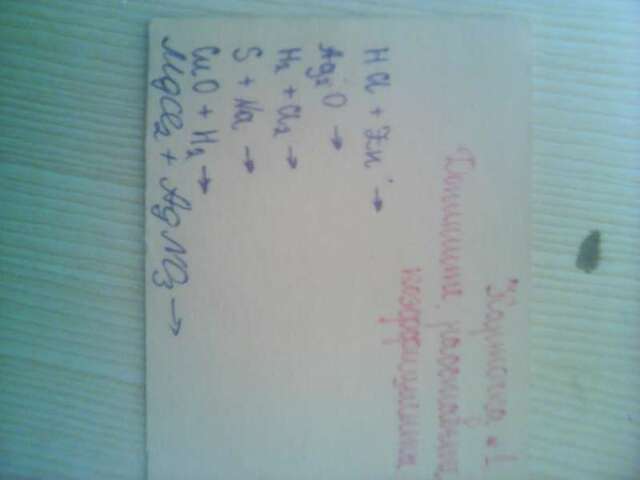 Карточка №1
Допишите, расставьте
коэффициенты
HCl + Zn →
Ag₂O →
H₂ + Cl₂ →
S + Na →
CuO + H₂ →
MgCl₂ + AgNO₃ →